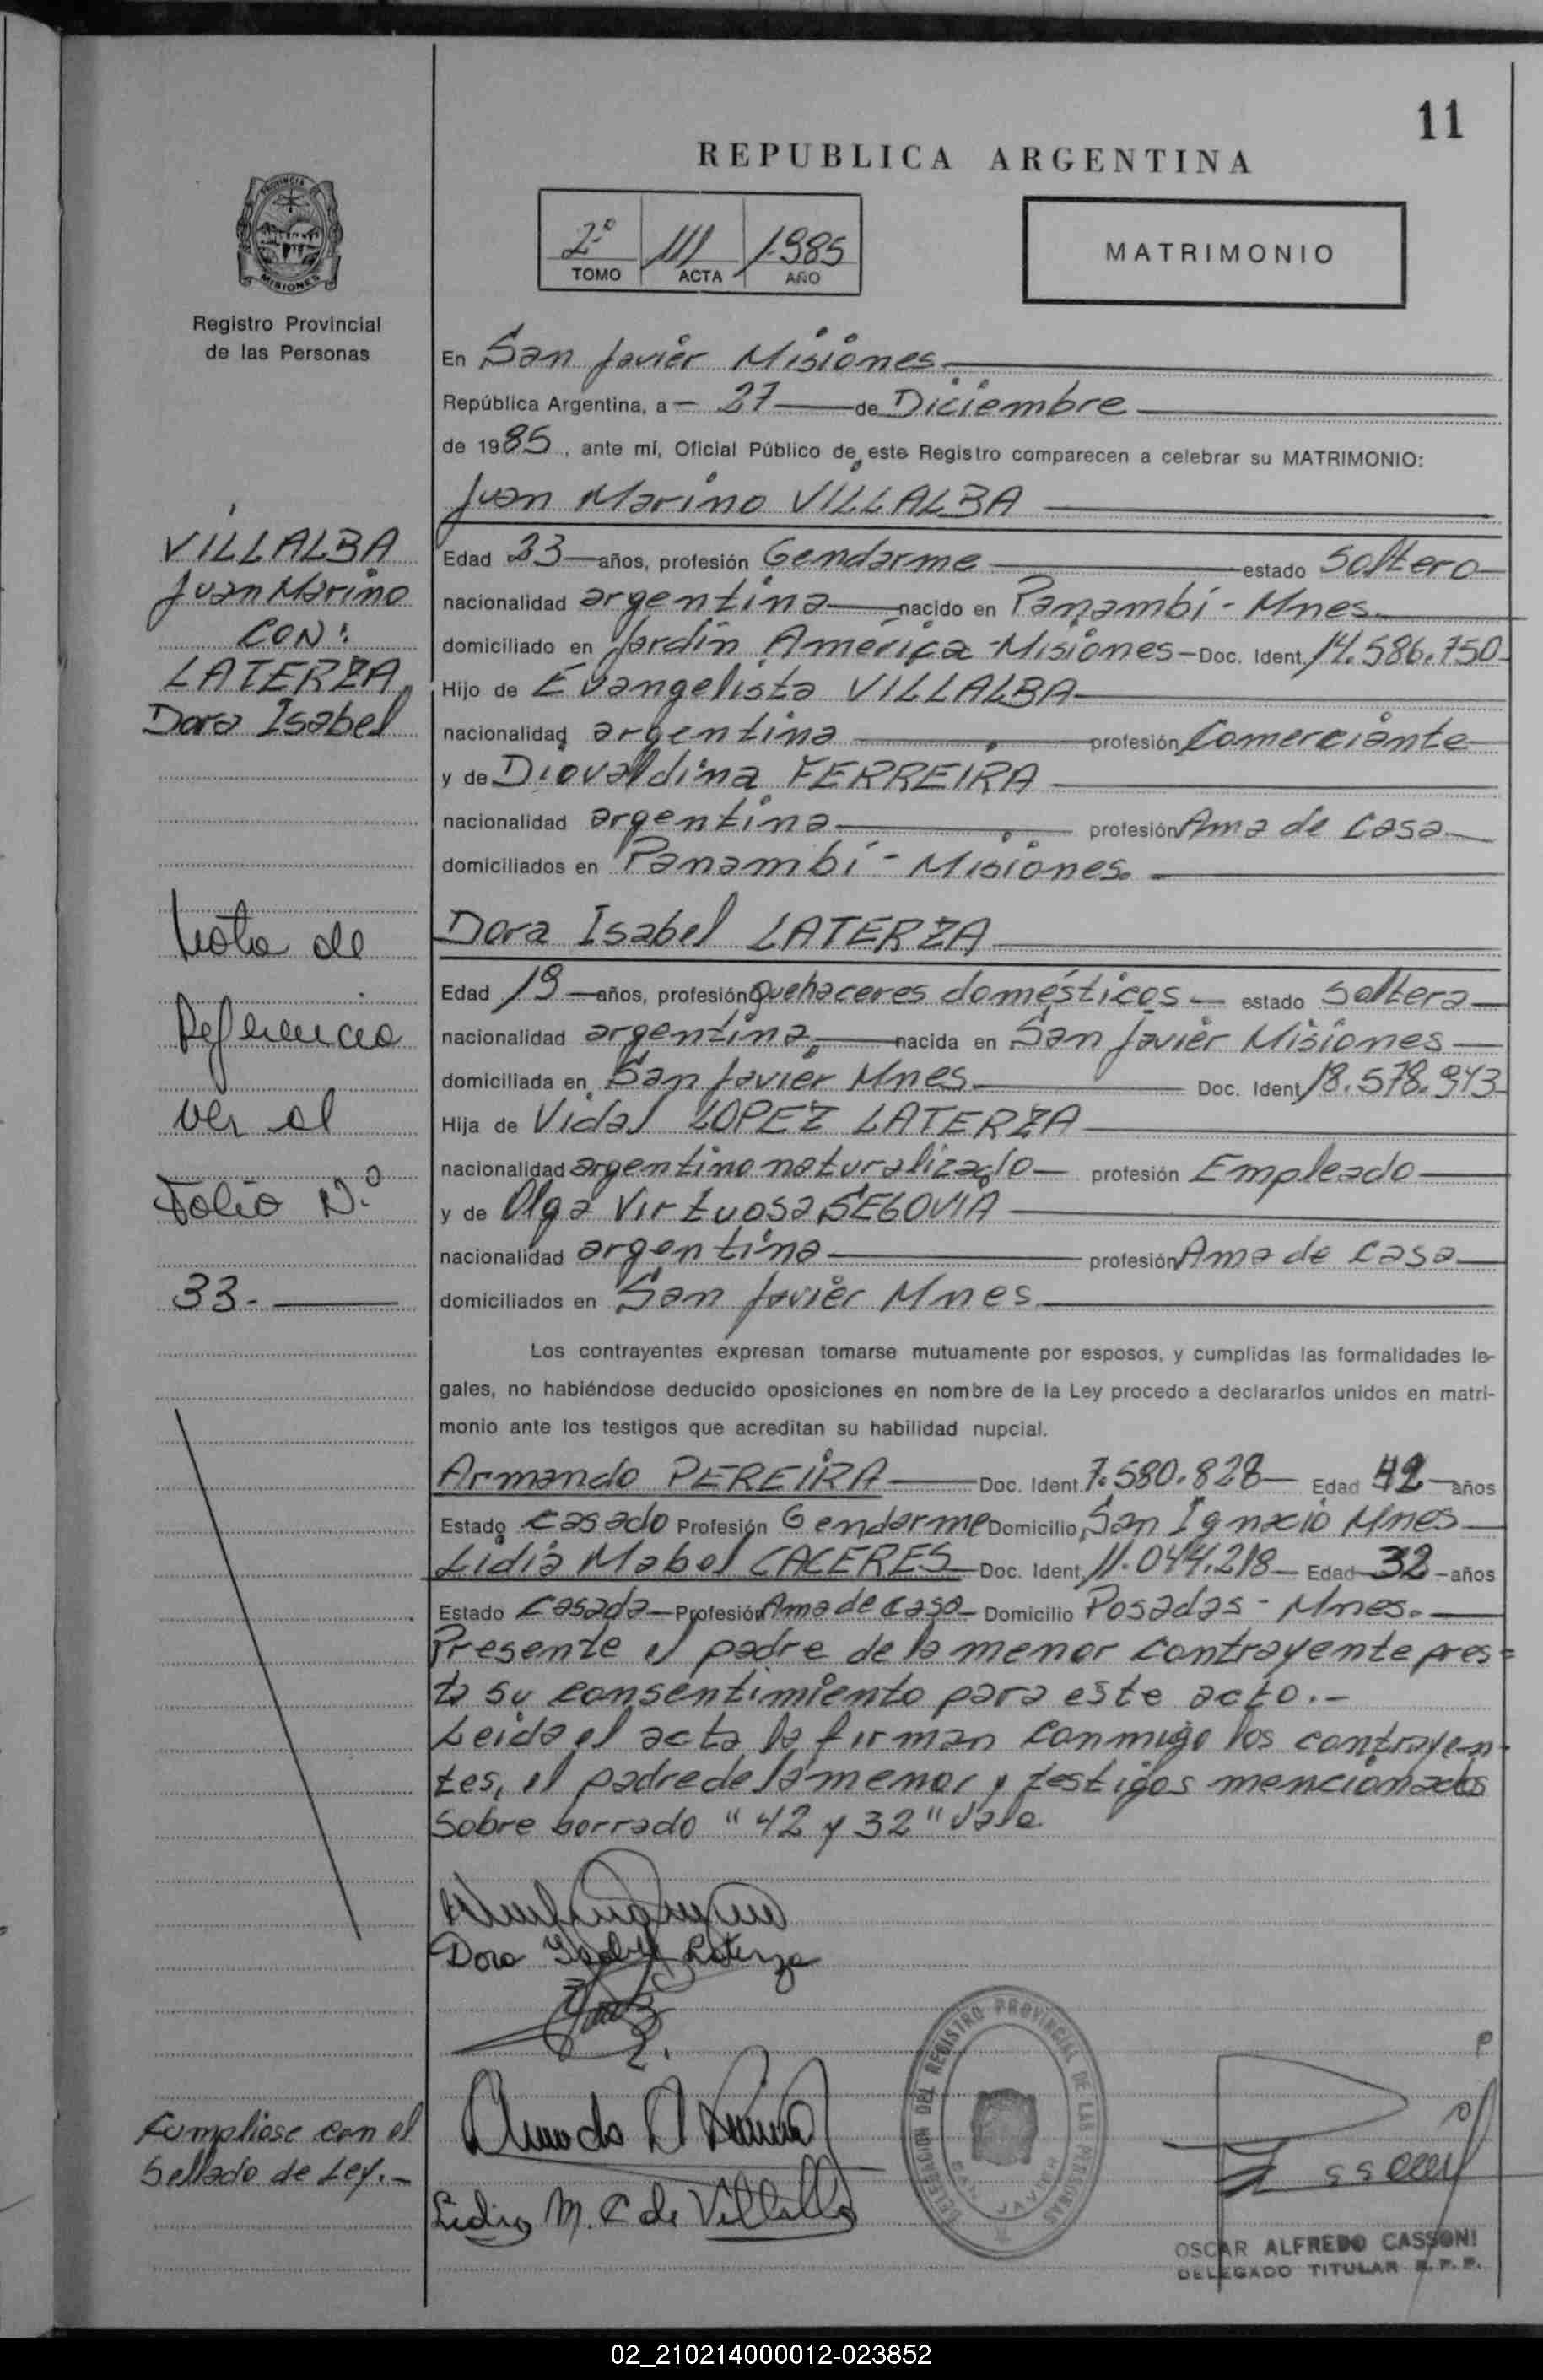 11
REPUBLICA ARGENTINA
2º TOMO 111 ACTA 1.985 AÑO
MATRIMONIO
PROVINCIA
MISIONES
Registro Provincial
de las Personas
En San Javier Misiones
República Argentina, a - 27 de Diciembre
de 1985, ante mí, Oficial Público de este Registro comparecen a celebrar su MATRIMONIO:
Juan Marino VILLALBA
VILLALBA
Juan Marino
CON:
LATERZA,
Dora Isabel
Edad 23 años, profesión Gendarme estado Soltero
nacionalidad argentina nacido en Panambí - Mnes.
domiciliado en Jardín América - Misiones - Doc. Ident. 14.586.750
Hijo de Evangelista VILLALBA
nacionalidad argentina profesión Comerciante
y de Diovaldina FERREIRA
nacionalidad argentina profesión Ama de casa
domiciliados en Panambí - Misiones. -
Dora Isabel LATERZA
Edad 19 años, profesión quehaceres domésticos - estado Soltera
nacionalidad argentina. nacida en San Javier Misiones
domiciliada en San Javier Mnes. Doc. Ident. 18.578.943
Hija de Vidal LOPEZ LATERZA
nacionalidad argentino naturalizado profesión Empleado
y de Olga Virtuosa SEGOVIA
nacionalidad argentina profesión Ama de casa
domiciliados en San Javier Mnes.
Nota de
Referencia
ver al
Folio N.º
33.-
Los contrayentes expresan tomarse mutuamente por esposos, y cumplidas las formalidades le-
gales, no habiéndose deducido oposiciones en nombre de la Ley procedo a declararlos unidos en matri-
monio ante los testigos que acreditan su habilidad nupcial.
Armando PEREIRA Doc. Ident. 7.580.828 Edad 42 años
Estado casado Profesión Gendarme Domicilio San Ignacio Mnes
Lidia Mabel CACERES Doc. Ident. 11.044.218 Edad 32 años
Estado casada Profesión Ama de casa - Domicilio Posadas - Mnes.
Presente el padre de la menor contrayente pres=
ta su consentimiento para este acto.-
Leida el acta la firman conmigo los contrayen-
tes, el padre de la menor y testigos mencionados
Sobre borrado "42 y 32" Vale
Dora Isabel Laterza
Lidia M. C de Villalba
Cumpliose con el
Sellado de Ley.-
DELEGACION DEL REGISTRO PROVINCIAL DE LAS PERSONAS
SAN JAVIER
OSCAR ALFREDO CASSONI
DELEGADO TITULAR R.P.P.
02_210214000012-023852